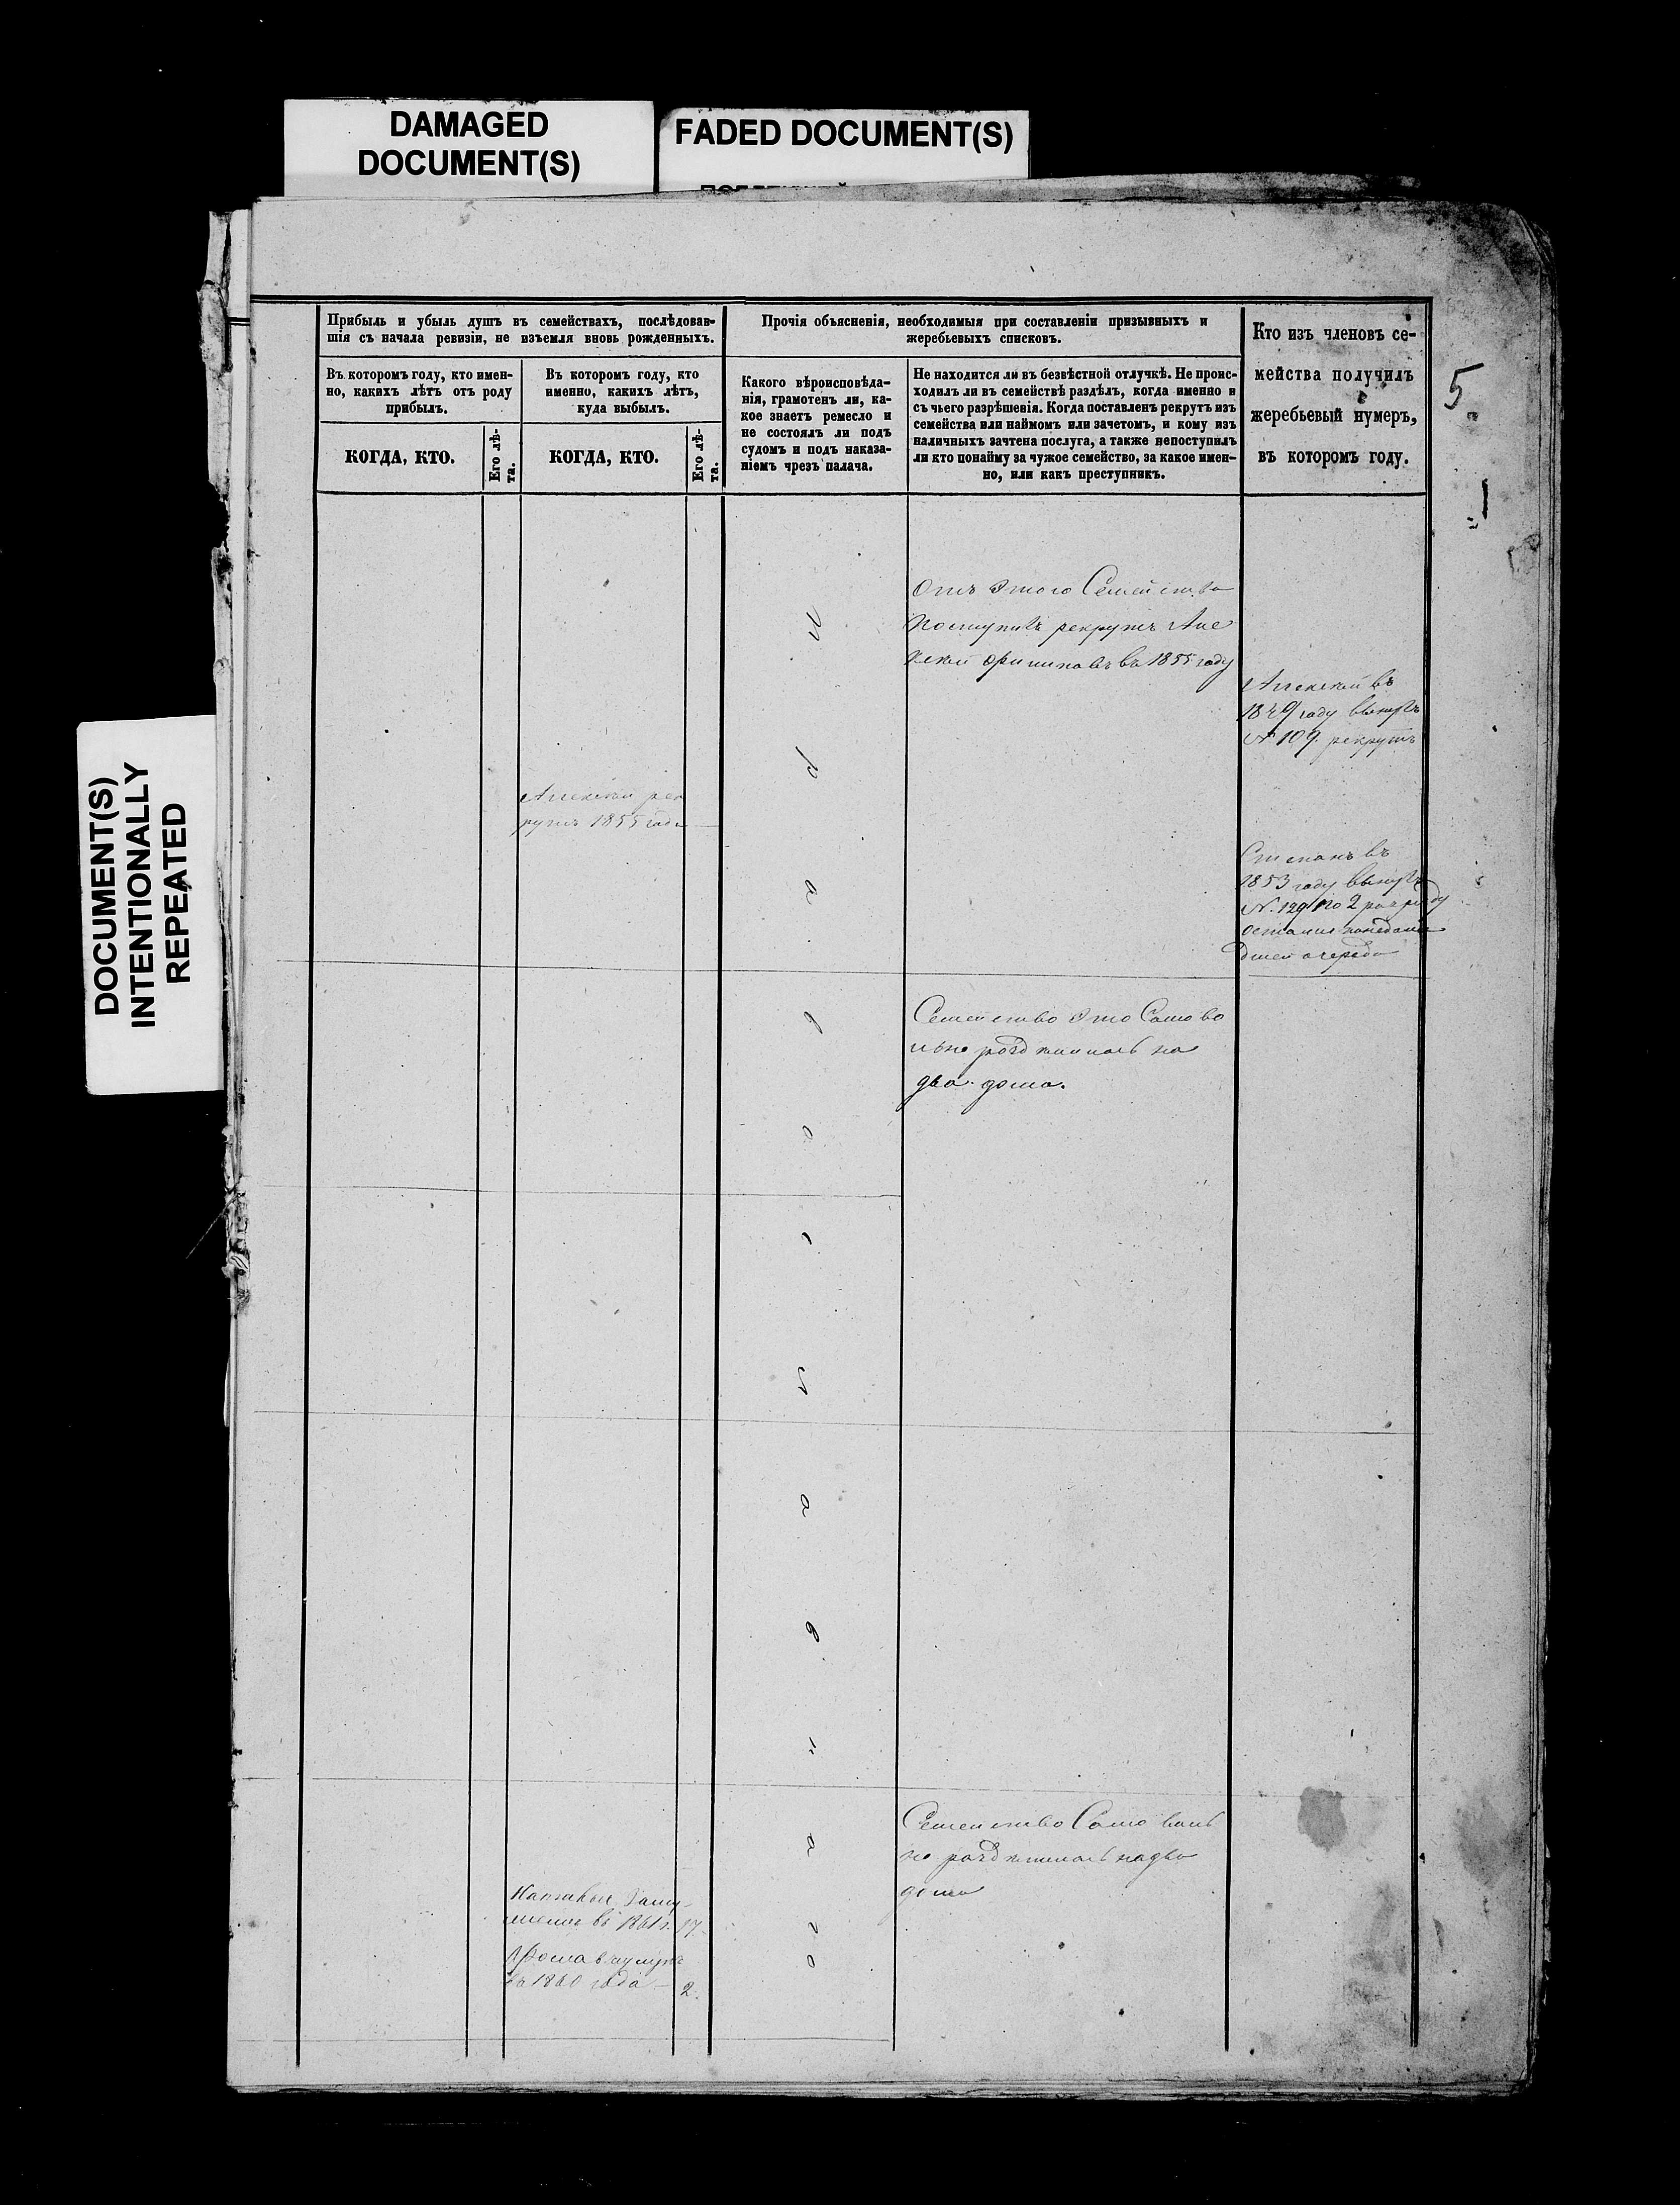 DAMAGED
DOCUMENT(S)
FADED DOCUMENT(S)
DOCUMENT(S)
INTENTIONALLY
REPEATED
Прибыль и убыль душъ въ семействахъ, послѣдовав-
шія съ начала ревизіи, не изъемля вновь рожденныхъ.
Въ которомъ году, кто имен-
но, какихъ лѣтъ отъ роду
прибылъ.
КОГДА, КТО.
Его лѣ-
та.
Въ которомъ году, кто
именно, какихъ лѣтъ,
куда выбылъ.
КОГДА, КТО.
Его лѣ-
та.
Прочія объясненія, необходимыя при составленіи призывныхъ и
жеребьевыхъ списковъ.
Какого вѣроисповѣда-
нія, грамотенъ ли, ка-
кое знаетъ ремесло и
не состоялъ ли подъ
судомъ и подъ наказа-
ніемъ чрезъ палача.
Не находится ли въ безвѣстной отлучкѣ. Не проис-
ходилъ ли въ семействѣ раздѣлъ, когда именно и
съ чьего разрѣшенія. Когда поставленъ рекрутъ изъ
семейства или наймомъ или зачетомъ, и кому изъ
наличныхъ зачтена послуга, а также непоступилъ
ли кто понайму за чужое семейство, за какое имен-
но, или какъ преступникъ.
Кто изъ членовъ се-
мейства получилъ
жеребьевый нумеръ,
въ которомъ году.
5
1
Отъ этого Семейства
поступилъ рекрутъ Але
ксей въ 1855 году
Алексей въ
1849 году вынулъ
№ 109. рекрутъ
Алексей рек
рутъ 1855 года
Степанъ въ
1853 году вынулъ
№. 129 по 2 разряду
остался
очереди
Семейство это Самово
льно разделилось на
два дома.
П
р
а
в
о
с
л
а
в
н
а
г
о
Семейство Самоволь
но разделилось надва
дома
въ 1861 г. 17
въ 1860 года — 2.